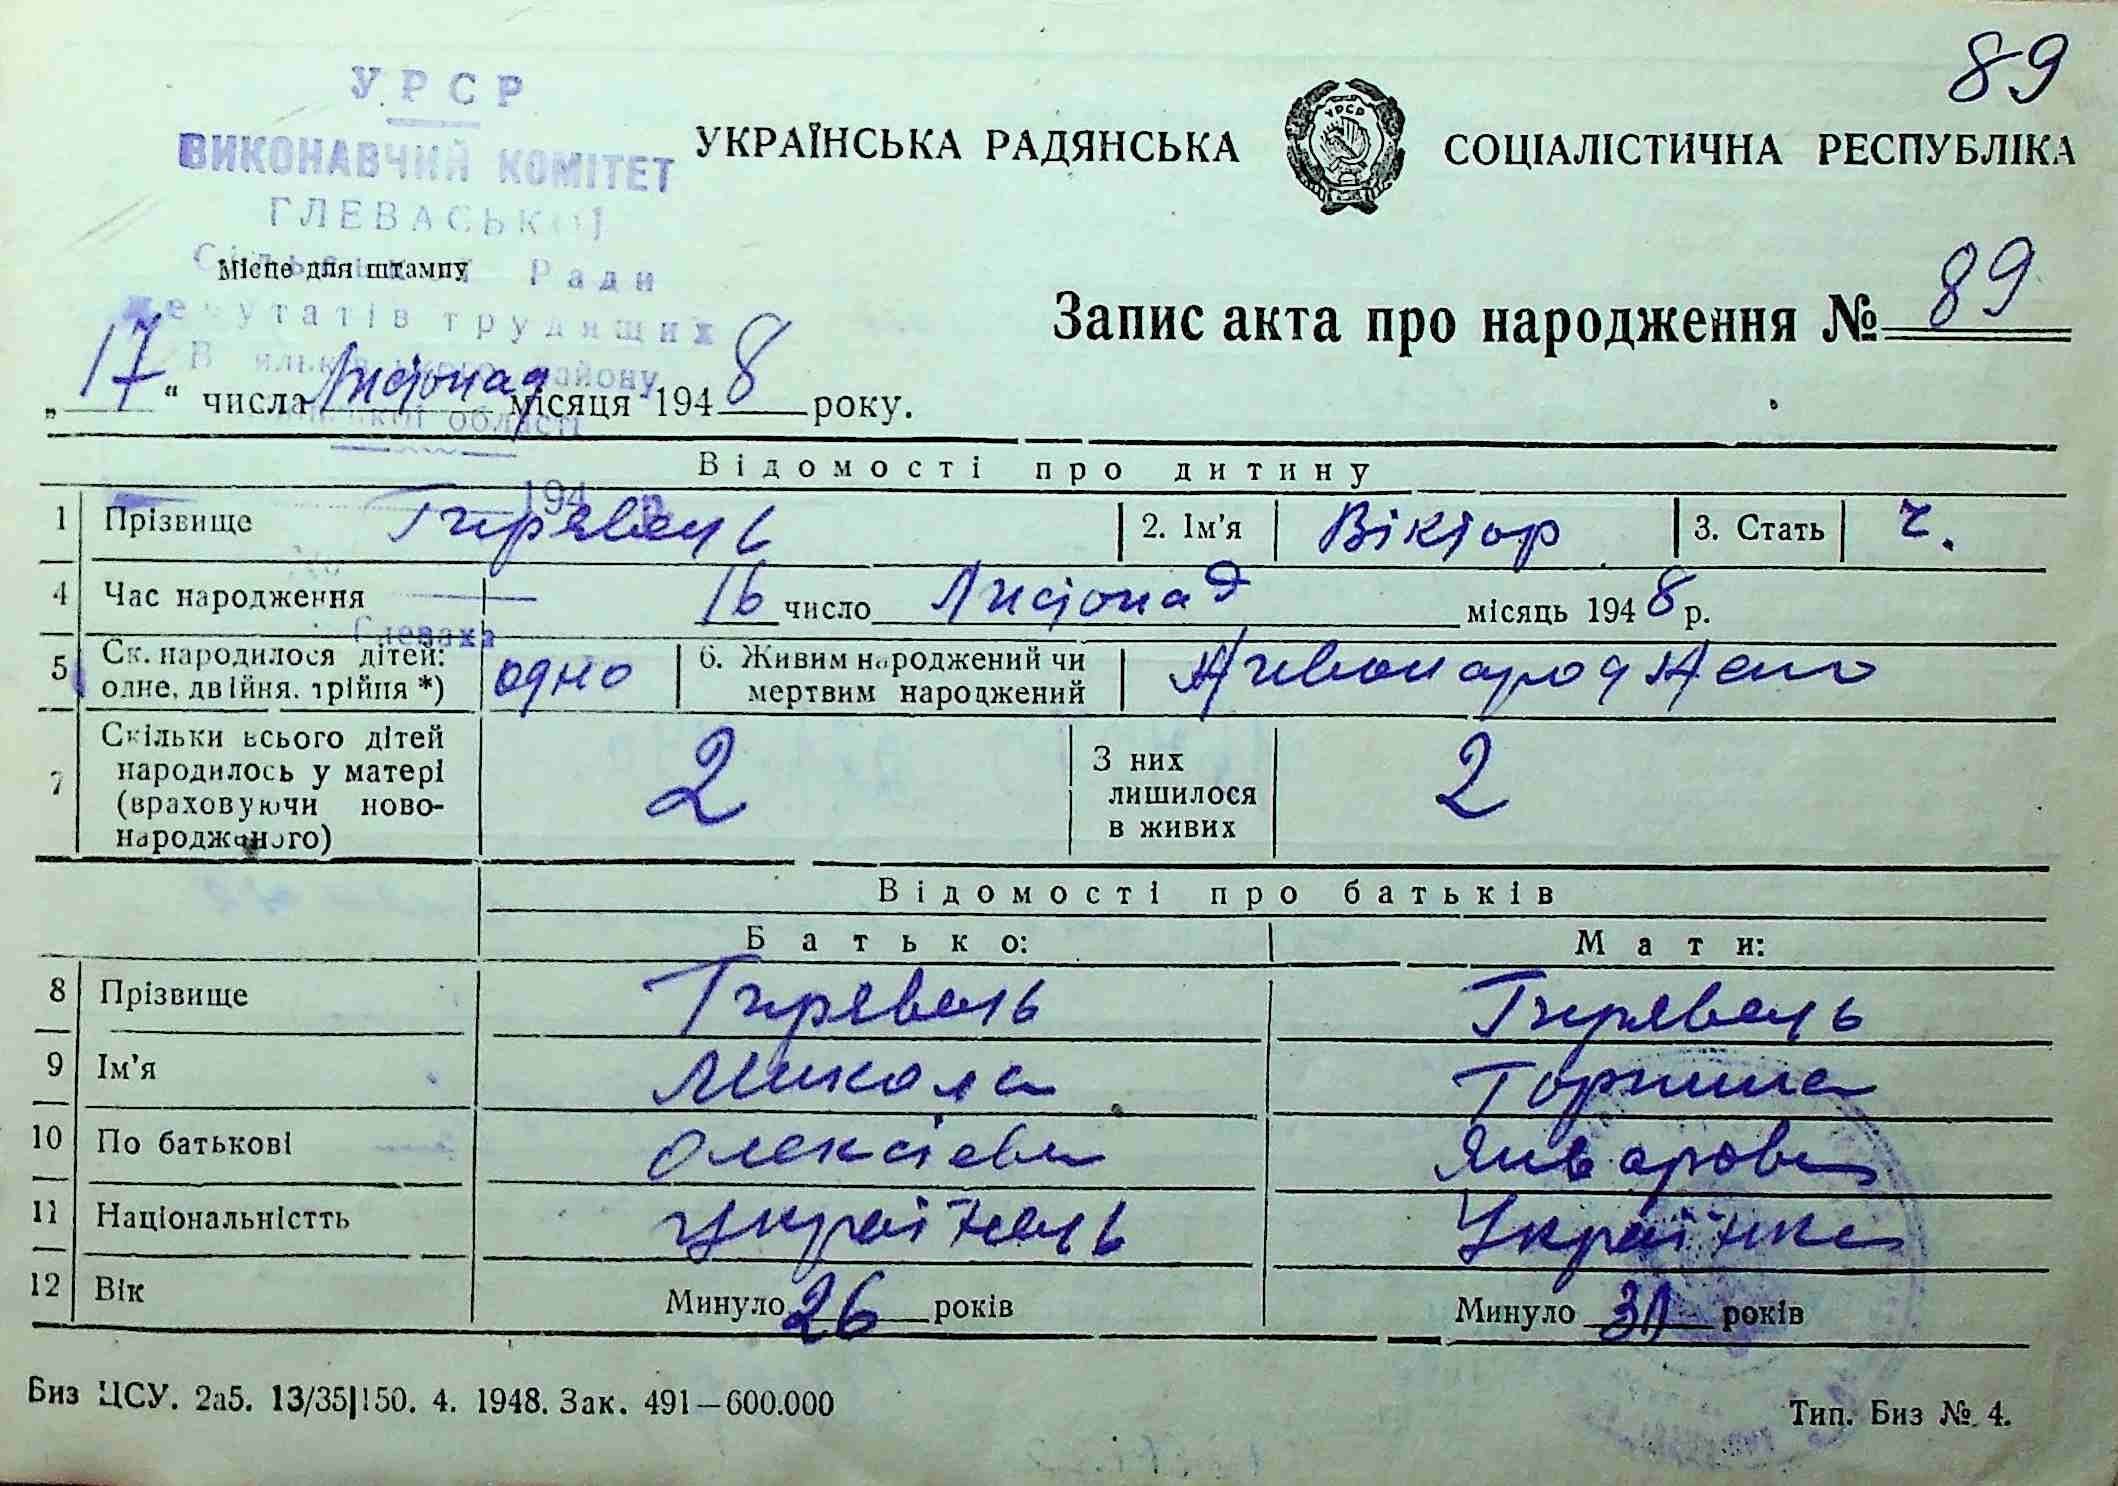 89
УРСР
ВИКОНАВЧИЙ КОМІТЕТ
ГЛЕВАСЬКОЇ
Сільської Ради
депутатів трудящих
району
області
УКРАЇНСЬКА РАДЯНСЬКА СОЦІАЛІСТИЧНА РЕСПУБЛІКА
Місце для штампу
Запис акта про народження № 89
„17“ числа Листопад місяця 1948 року.
Відомості про дитину
194
1 Прізвище 2. Ім'я Віктор 3. Стать ч.
4 Час народження 16 число Листопад місяць 1948 р.
Глеваха
5 Ск. народилося дітей: одне, двійня, трійня *) одно 6. Живим народжений чи мертвим народжений Живонароджено
7 Скільки всього дітей народилось у матері (враховуючи новонародженого) 2 З них лишилося в живих 2
Відомості про батьків
Батько: Мати:
8 Прізвище
9 Ім'я Микола
10 По батькові Олексієви
11 Національністть Українець Українка
12 Вік Минуло 26 років Минуло 31 років
Биз ЦСУ. 2а5. 13/35|150. 4. 1948. Зак. 491—600.000
Тип. Биз № 4.